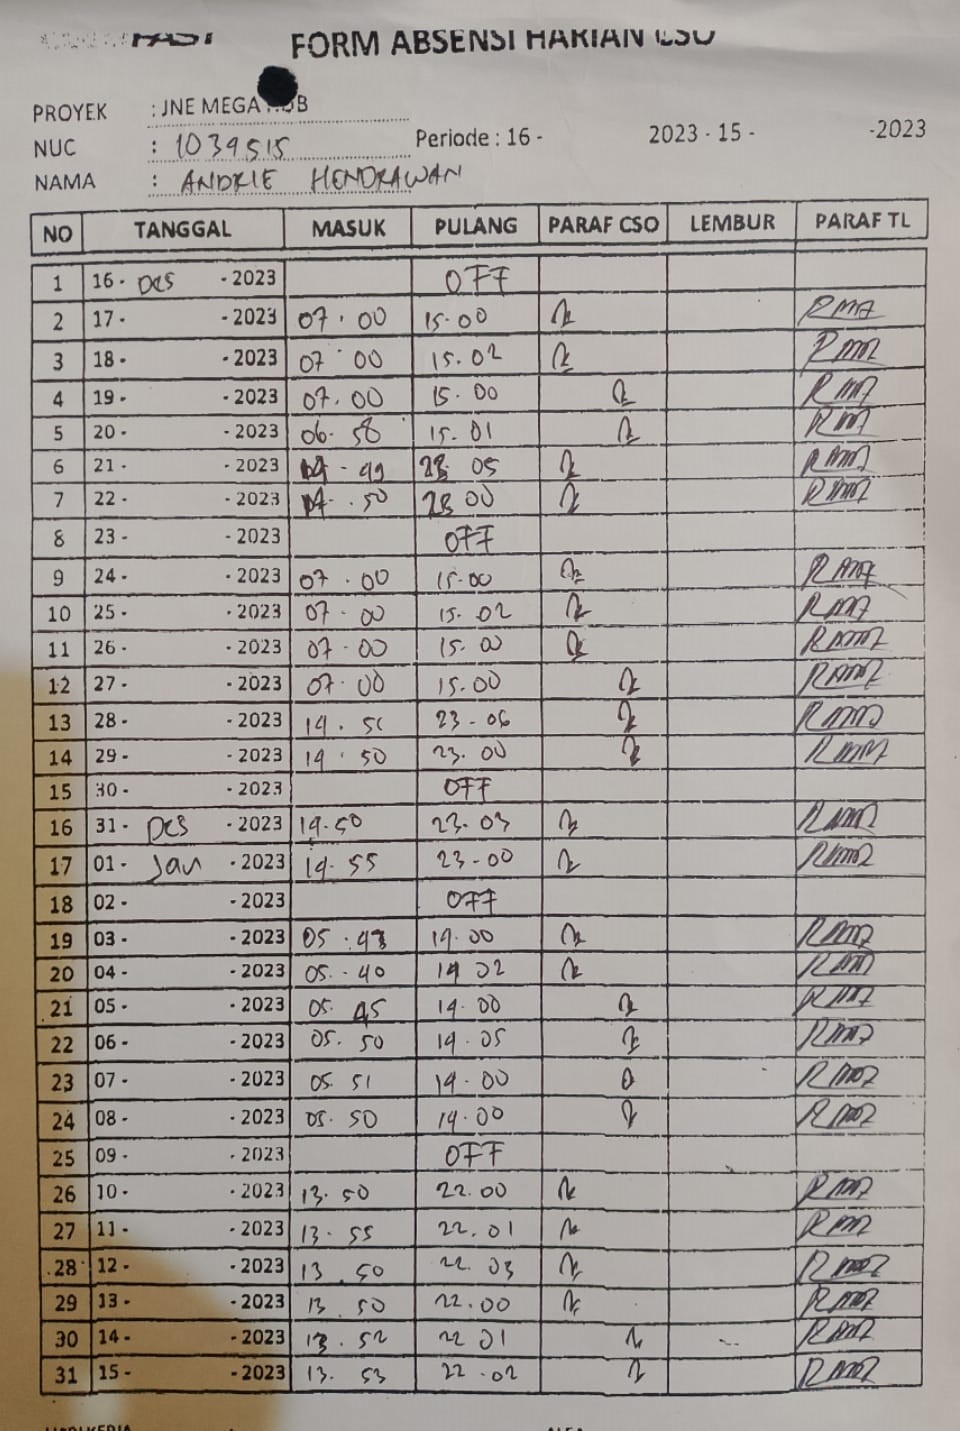 FAST
FORM ABSENSI HARIAN CSO
PROYEK : JNE MEGA HUB
NUC : 1039515
Periode : 16 - 2023 - 15 - -2023
NAMA : ANDRIE HENDRAWAN
NO TANGGAL MASUK PULANG PARAF CSO LEMBUR PARAF TL
1 16 - Des - 2023 OFF
2 17 - - 2023 07.00 15.00
3 18 - - 2023 07.00 15.02
4 19 - - 2023 07.00 15.00
5 20 - - 2023 06.58 15.01
6 21 - - 2023 05
7 22 - - 2023 .50 00
8 23 - - 2023 OFF
9 24 - - 2023 07.00 15.00
10 25 - - 2023 07.00 15.02
11 26 - - 2023 07.00 15.00
12 27 - - 2023 07.00 15.00
13 28 - - 2023 23-06
14 29 - - 2023 14.50 23.00
15 30 - - 2023 OFF
16 31 - Des - 2023 14.50 23.03
17 01 - Jan - 2023 14.55 23-00
18 02 - - 2023 OFF
19 03 - - 2023 14.00
20 04 - - 2023 05.-40 14 02
21 05 - - 2023 05.45 14.00
22 06 - - 2023 05.50 14.05
23 07 - - 2023 05 51 14-00
24 08 - - 2023 05.50 14.00
25 09 - - 2023 OFF
26 10 - - 2023 13.50 22.00
27 11 - - 2023 13.55 22.01
28 12 - - 2023 13.50 22.03
29 13 - - 2023 13.50 22.00
30 14 - - 2023 13.52 22 01
31 15 - - 2023 13.53 22.02